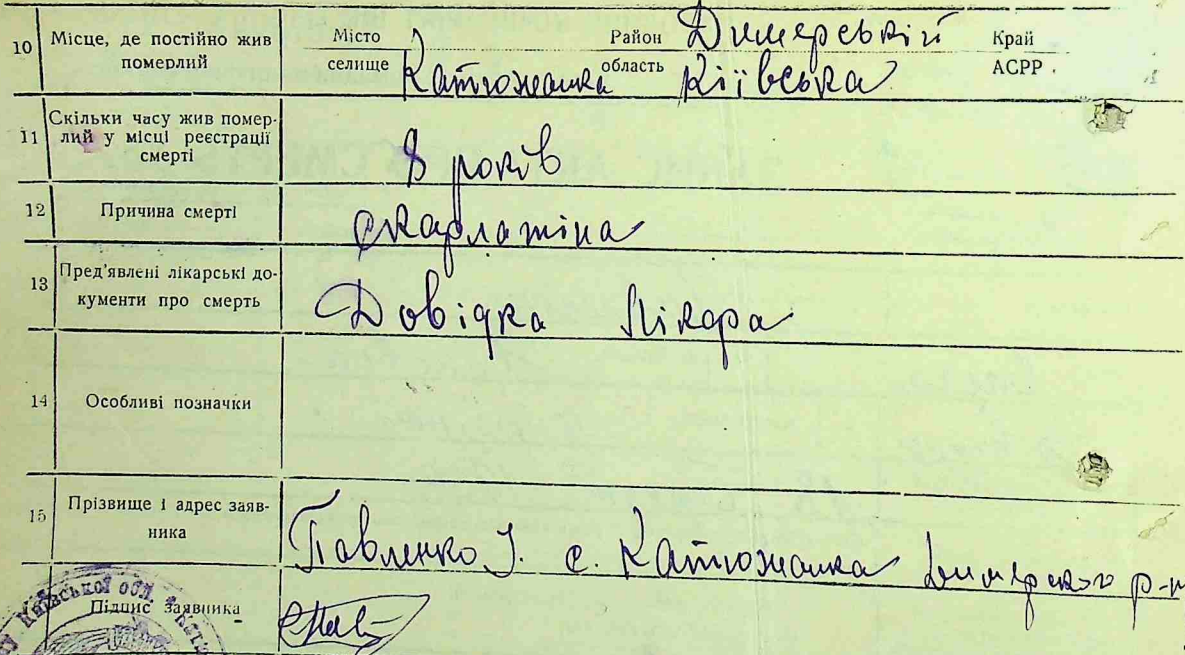 10 Місце, де постійно жив Місто Район Димерський Край
померлий селище Катюжанка область Київська АСРР.
11 Скільки часу жив помер-
лий у місці реєстрації
смерті
8 років
12 Причина смерті скарлатіна
13 Пред'явлені лікарські до-
кументи про смерть
Довідка Лікара
14 Особливі позначки
15 Прізвище і адрес заяв-
ника
Павленко І. с. Катюжанка Димерского р-н
Підпис Заявника
Київської обл.